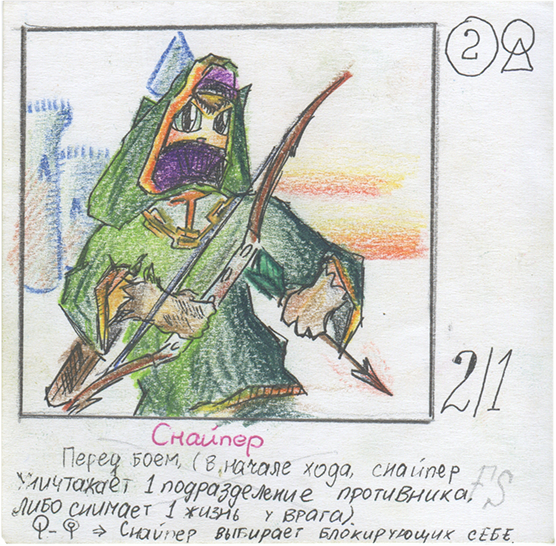 2
2/1
Снайпер
Перед боем, (в начале хода, снайпер
уничтажает 1 подразделение противника,
либо снимает 1 жизнь у врага)
FS
⇒ Снайпер выбирает блокирующих себе.